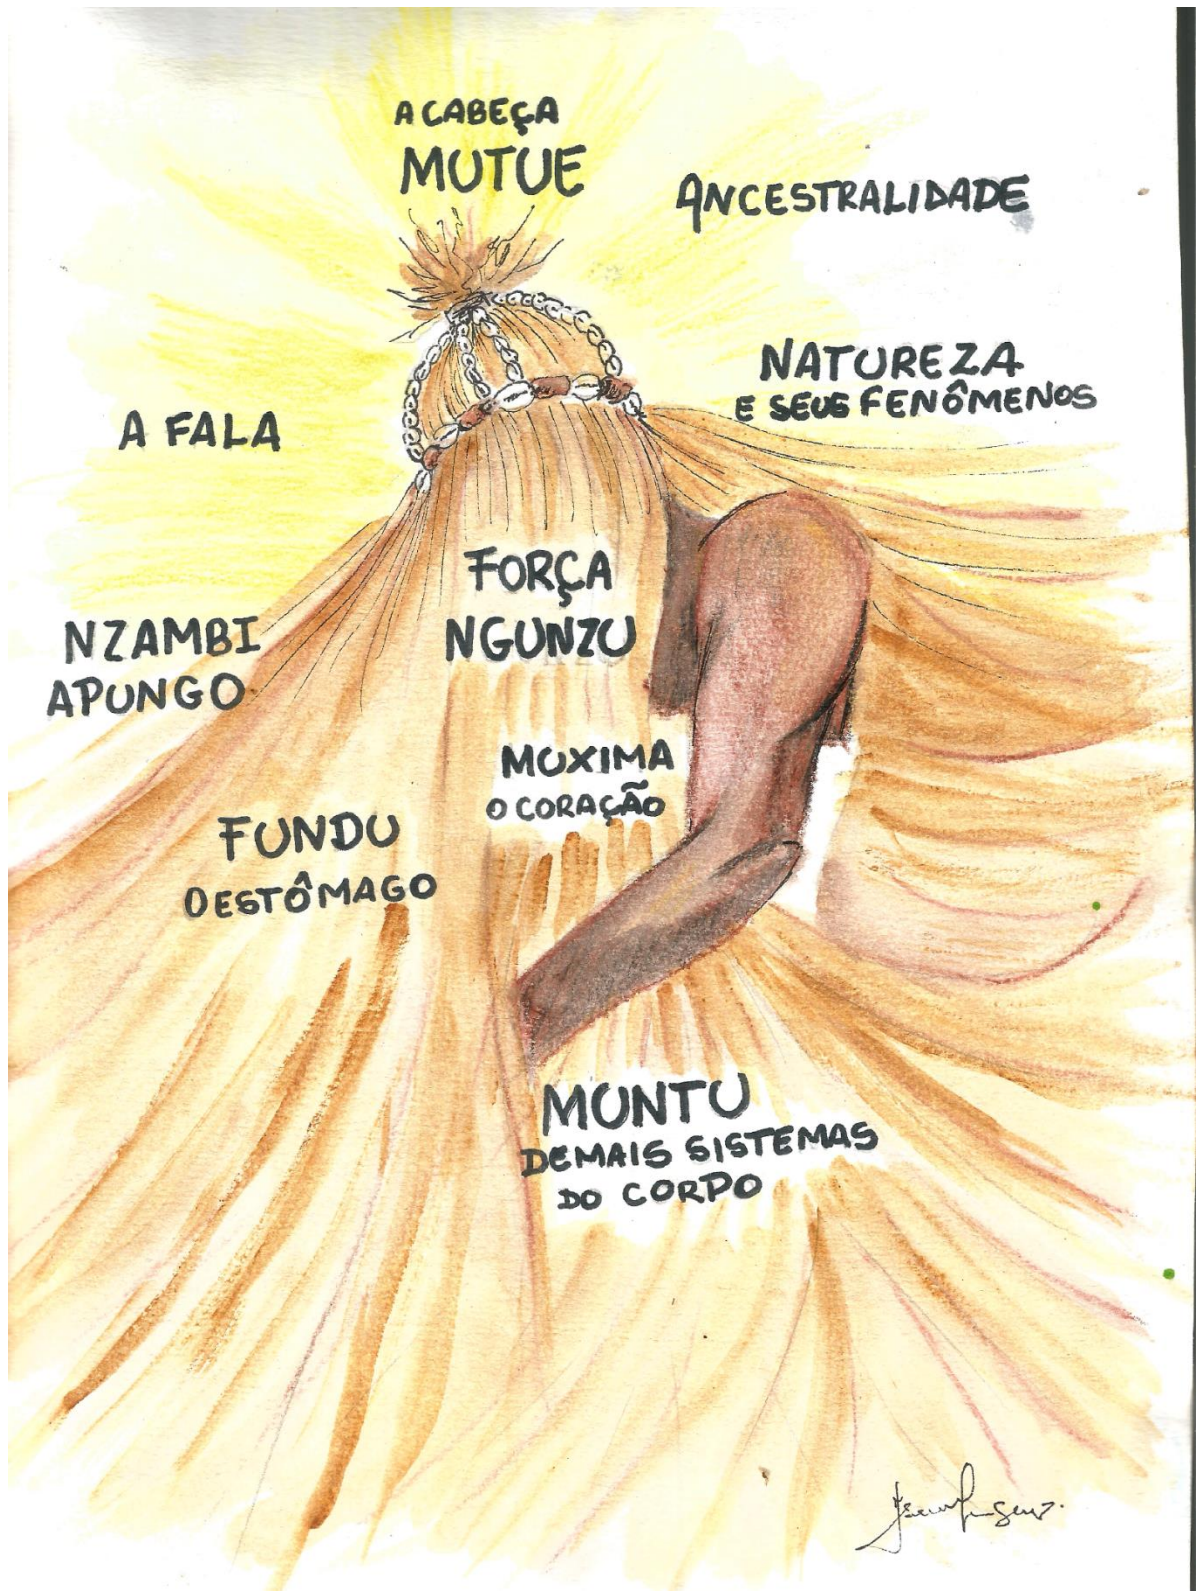 A CABEÇA
MUTUE
ANCESTRALIDADE
NATUREZA
E SEUS FENÔMENOS
A FALA
FORÇA
NGUNZU
NZAMBI
APUNGO
MUXIMA
O CORAÇÃO
FUNDU
O ESTÔMAGO
MUNTU
DEMAIS SISTEMAS
DO CORPO